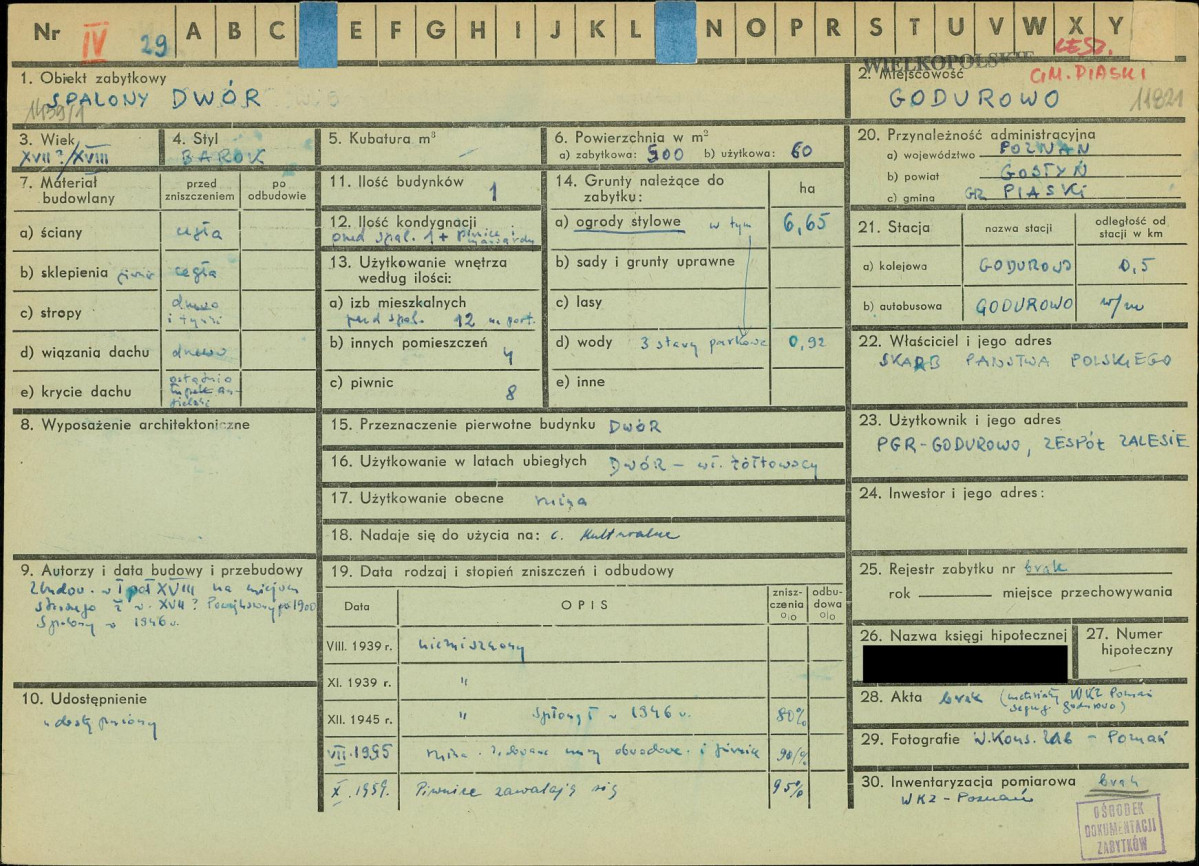 Nr IV 29 A B C E F G H I J K L N O P R S T U V W X Y
WIELKOPOLSKIE LESZ.
1. Obiekt zabytkowy
SPALONY DWÓR
1439/1
2. Miejscowość GM. PIASKI
GODUROWO 11821
3. Wiek
XVII?/XVIII
4. Styl
BAROK
5. Kubatura m³
–
6. Powierzchnia w m²
a) zabytkowa: 500 b) użytkowa: 60
7. Materiał budowlany
przed zniszczeniem
po odbudowie
a) ściany cegła
b) sklepienia piwnic cegła
c) stropy drewo i tynki
d) wiązania dachu drewo
e) krycie dachu ostatnio łupek angielski
8. Wyposażenie architektoniczne
9. Autorzy i data budowy i przebudowy
Zbudow. w I poł XVIII na miejscu
starszego z w. XVII? Powiększony po 1900
Spalony w 1946 r.
10. Udostępnienie
udostępniony
11. Ilość budynków 1
12. Ilość kondygnacji
przed spal. 1 + piwnice i mansarda
13. Użytkowanie wnętrza
według ilości:
a) izb mieszkalnych
przed spal. 12 na part.
b) innych pomieszczeń
4
c) piwnic 8
14. Grunty należące do
zabytku:
ha
a) ogrody stylowe w tym 6,65
b) sady i grunty uprawne
c) lasy
d) wody 3 stawy parkowe 0,92
e) inne
15. Przeznaczenie pierwotne budynku DWÓR
16. Użytkowanie w latach ubiegłych DWÓR – wł. Żółtowscy
17. Użytkowanie obecne ruina
18. Nadaje się do użycia na: c. kulturalne
19. Data rodzaj i stopień zniszczeń i odbudowy
Data OPIS zniszczenia % odbudowa %
VIII. 1939 r. niezniszczony
XI. 1939 r. "
XII. 1945 r. " Spłonął w 1946 r. 80%
VII. 1955 ruina. Zachowane mury obwodowe i piwnice 90%
X. 1959. Piwnice zawalają się 95%
20. Przynależność administracyjna
a) województwo POZNAŃ
b) powiat GOSTYŃ
c) gmina GR. PIASKI
21. Stacja
nazwa stacji
odległość od stacji w km
a) kolejowa GODUROWO 0,5
b) autobusowa GODUROWO w/m
22. Właściciel i jego adres
SKARB PAŃSTWA POLSKIEGO
23. Użytkownik i jego adres
PGR-GODUROWO, ZESPÓŁ ZALESIE
24. Inwestor i jego adres:
25. Rejestr zabytku nr brak
rok miejsce przechowywania
26. Nazwa księgi hipotecznej
27. Numer hipoteczny
–
28. Akta brak (materiały WKZ Poznań
Godurowo)
29. Fotografie W. Kons. Zab – Poznań
30. Inwentaryzacja pomiarowa brak
WKZ – Poznań
OŚRODEK
DOKUMENTACJI
ZABYTKÓW